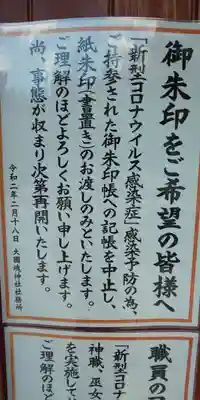 御朱印をご希望の皆様へ
「新型コロナウイルス感染症」感染予防の為、
ご持参された御朱印帳への記帳を中止し、
紙朱印(書置き)のお渡しのみといたします。
ご理解のほどよろしくお願い申し上げます。
尚、事態が収まり次第再開いたします。
令和二年二月十八日 大國魂神社社務所
職員の
「新型コロナ
神職、巫女
を実施して
ご理解のほ